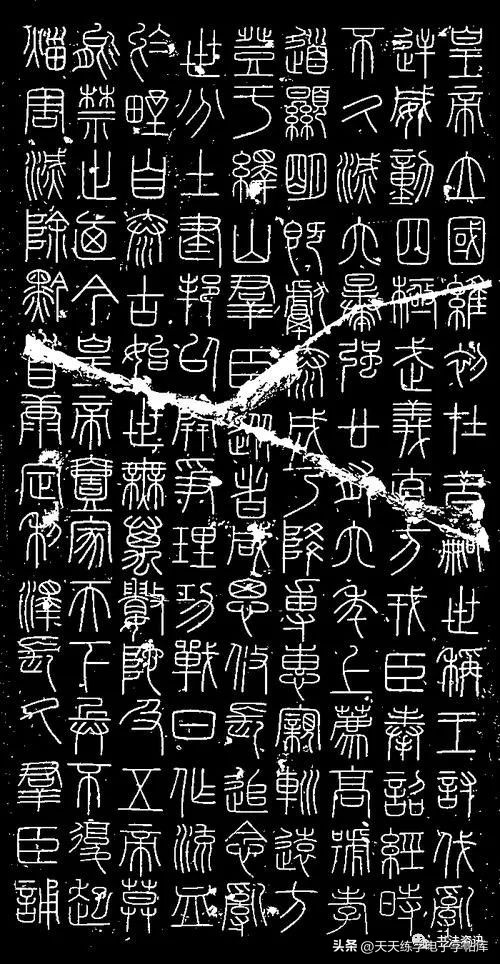 皇帝立國維初在昔嗣世稱王討伐亂
逆威動四極武義直方戎臣奉詔經時
不久滅六暴強廿有六年上薦高號孝
道顯明既獻泰成乃降專惠親巡遠方
登于繹山群臣從者咸思攸長追念亂
世分土建邦以開爭理功戰日作流血
於野自泰古始世無萬數陀及五帝莫
能禁止廼今皇帝壹家天下兵不復起
災害滅除黔首康定利澤長久群臣誦
书法资讯
头条 @天天练字电子字帖库